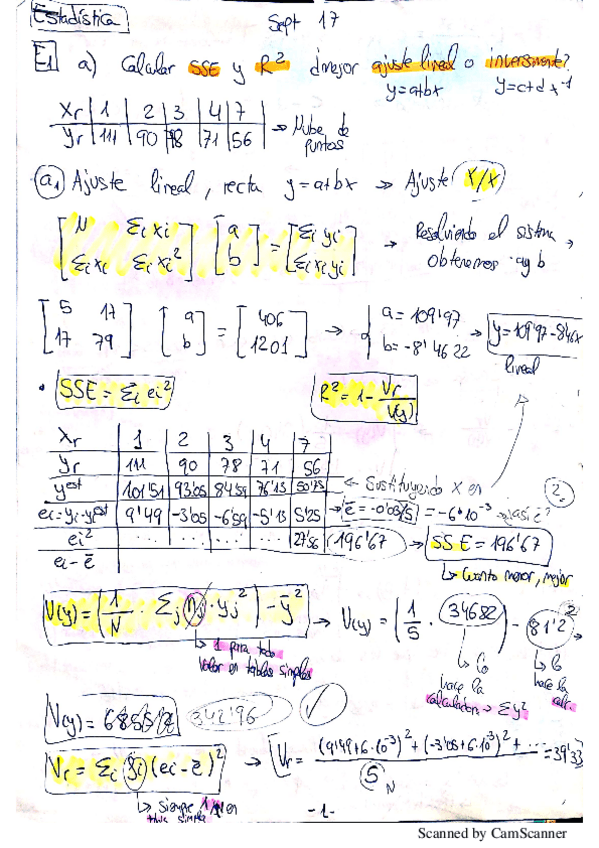 Estadística Sept 17
E1 a) Calcular SSE y R² ¿mejor ajuste lineal o inversamente?
y=a+bx y=c+dx⁻¹
Xr | 1 | 2 | 3 | 4 | 7
Yr | 111 | 90 | 78 | 71 | 56 → Nube de puntos
a₁ Ajuste lineal, recta y=a+bx ⇒ Ajuste Y/X
[N Σi xi; Σi xi Σi xi²] [a; b] = [Σi yi; Σi xi yi] → Resolviendo el sistema, obtenemos a y b
[5 17; 17 79] [a; b] = [406; 1201] → a = 109'97 b = -8'4622 → y=109'97-8'46x
lineal
• SSE = Σi ei² R² = 1 - Vr/V(y)
Xr | 1 | 2 | 3 | 4 | 7
Yr | 111 | 90 | 78 | 71 | 56
yest | 101'51 | 93'05 | 84'59 | 76'13 | 50'75 ← Sustituyendo X en
ei=yi-yest | 9'49 | -3'05 | -6'59 | -5'13 | 5'25 → ē = -0'03/5 = -6·10⁻³ ¿así ē?
2.
ei² | ... | ... | ... | ... | 27'56 (196'67) → SSE = 196'67
ei - ē
↳ Cuanto menor, mejor
V(y) = (1/N Σj nj · yj²) - ȳ² → V(y) = (1/5 · 34682) - 81'2²
↳ 1 para todo valor en tablas simples
↳ lo hace la calculadora → Σy²
↳ lo hace la calc.
V(y) = 342'96 ✓
Vr = Σi fi (ei - ē)² → Vr = (9'49+6·10⁻³)² + (-3'05+6·10⁻³)² + ... / 5 = 39'33
N
↳ Siempre 1/N en tabla simple
-1-
Scanned by CamScanner